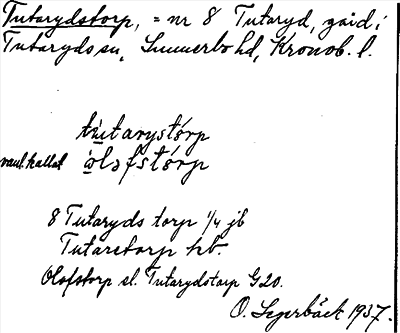 Tutarydstorp, = nr 8 Tutaryd, gård i
Tutaryds sn, Sunnerbo hd, Kronob. l.
tùtarystórp
vanl. kallat òlofstórp
8 Tutaryds torp 1/4 jb
Tutaretorp hb.
Olofstorp el. Tutarydstorp G20.
O. Segerbäck 1937.